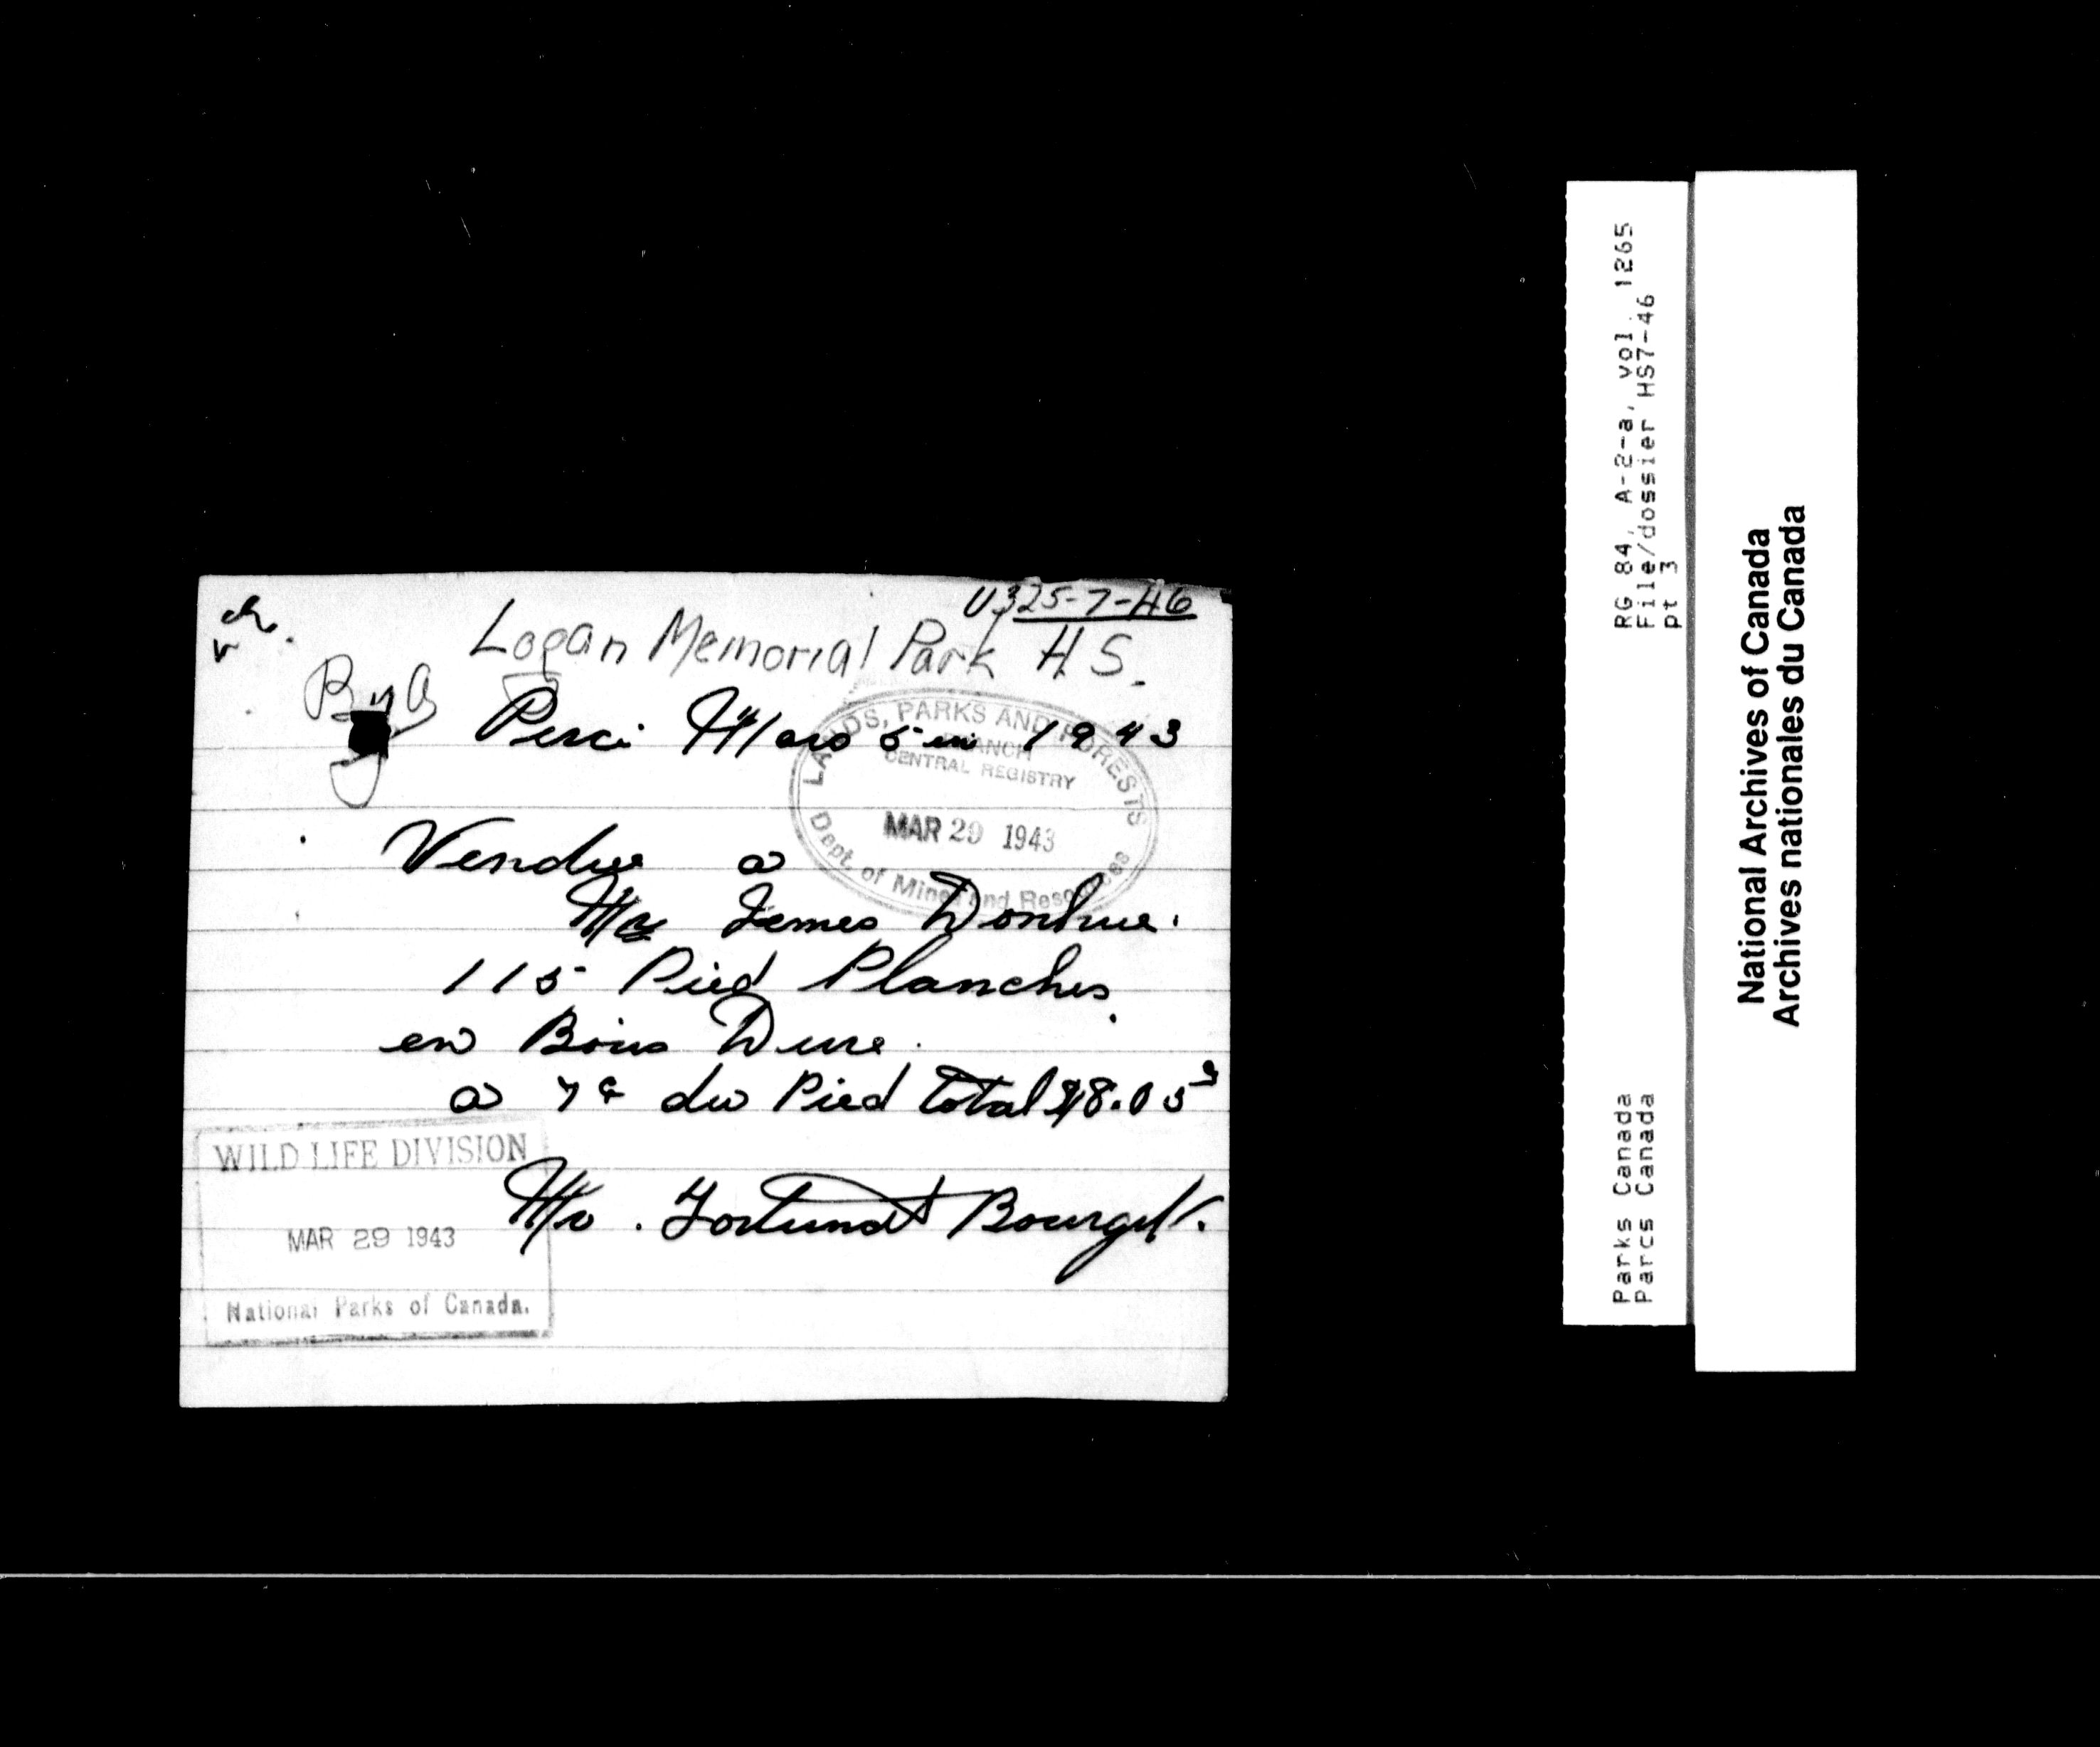 U325-7-46
Logan Memorial Park H S.
Perci Mars 5 en 1943
LANDS, PARKS AND FORESTS
BRANCH
CENTRAL REGISTRY
MAR 29 1943
Dept. of Mines and Resources
Vendue a
Mr James Donhue.
115 Pied Planches
en Bois Dure.
a 7¢ du Pied total $8.05
WILD LIFE DIVISION
MAR 29 1943
National Parks of Canada.
Mr. Fortunat Bourget.
RG 84, A-2-a, vol. 1265
File/dossier HS7-46
pt 3
Parks Canada
Parcs Canada
National Archives of Canada
Archives nationales du Canada